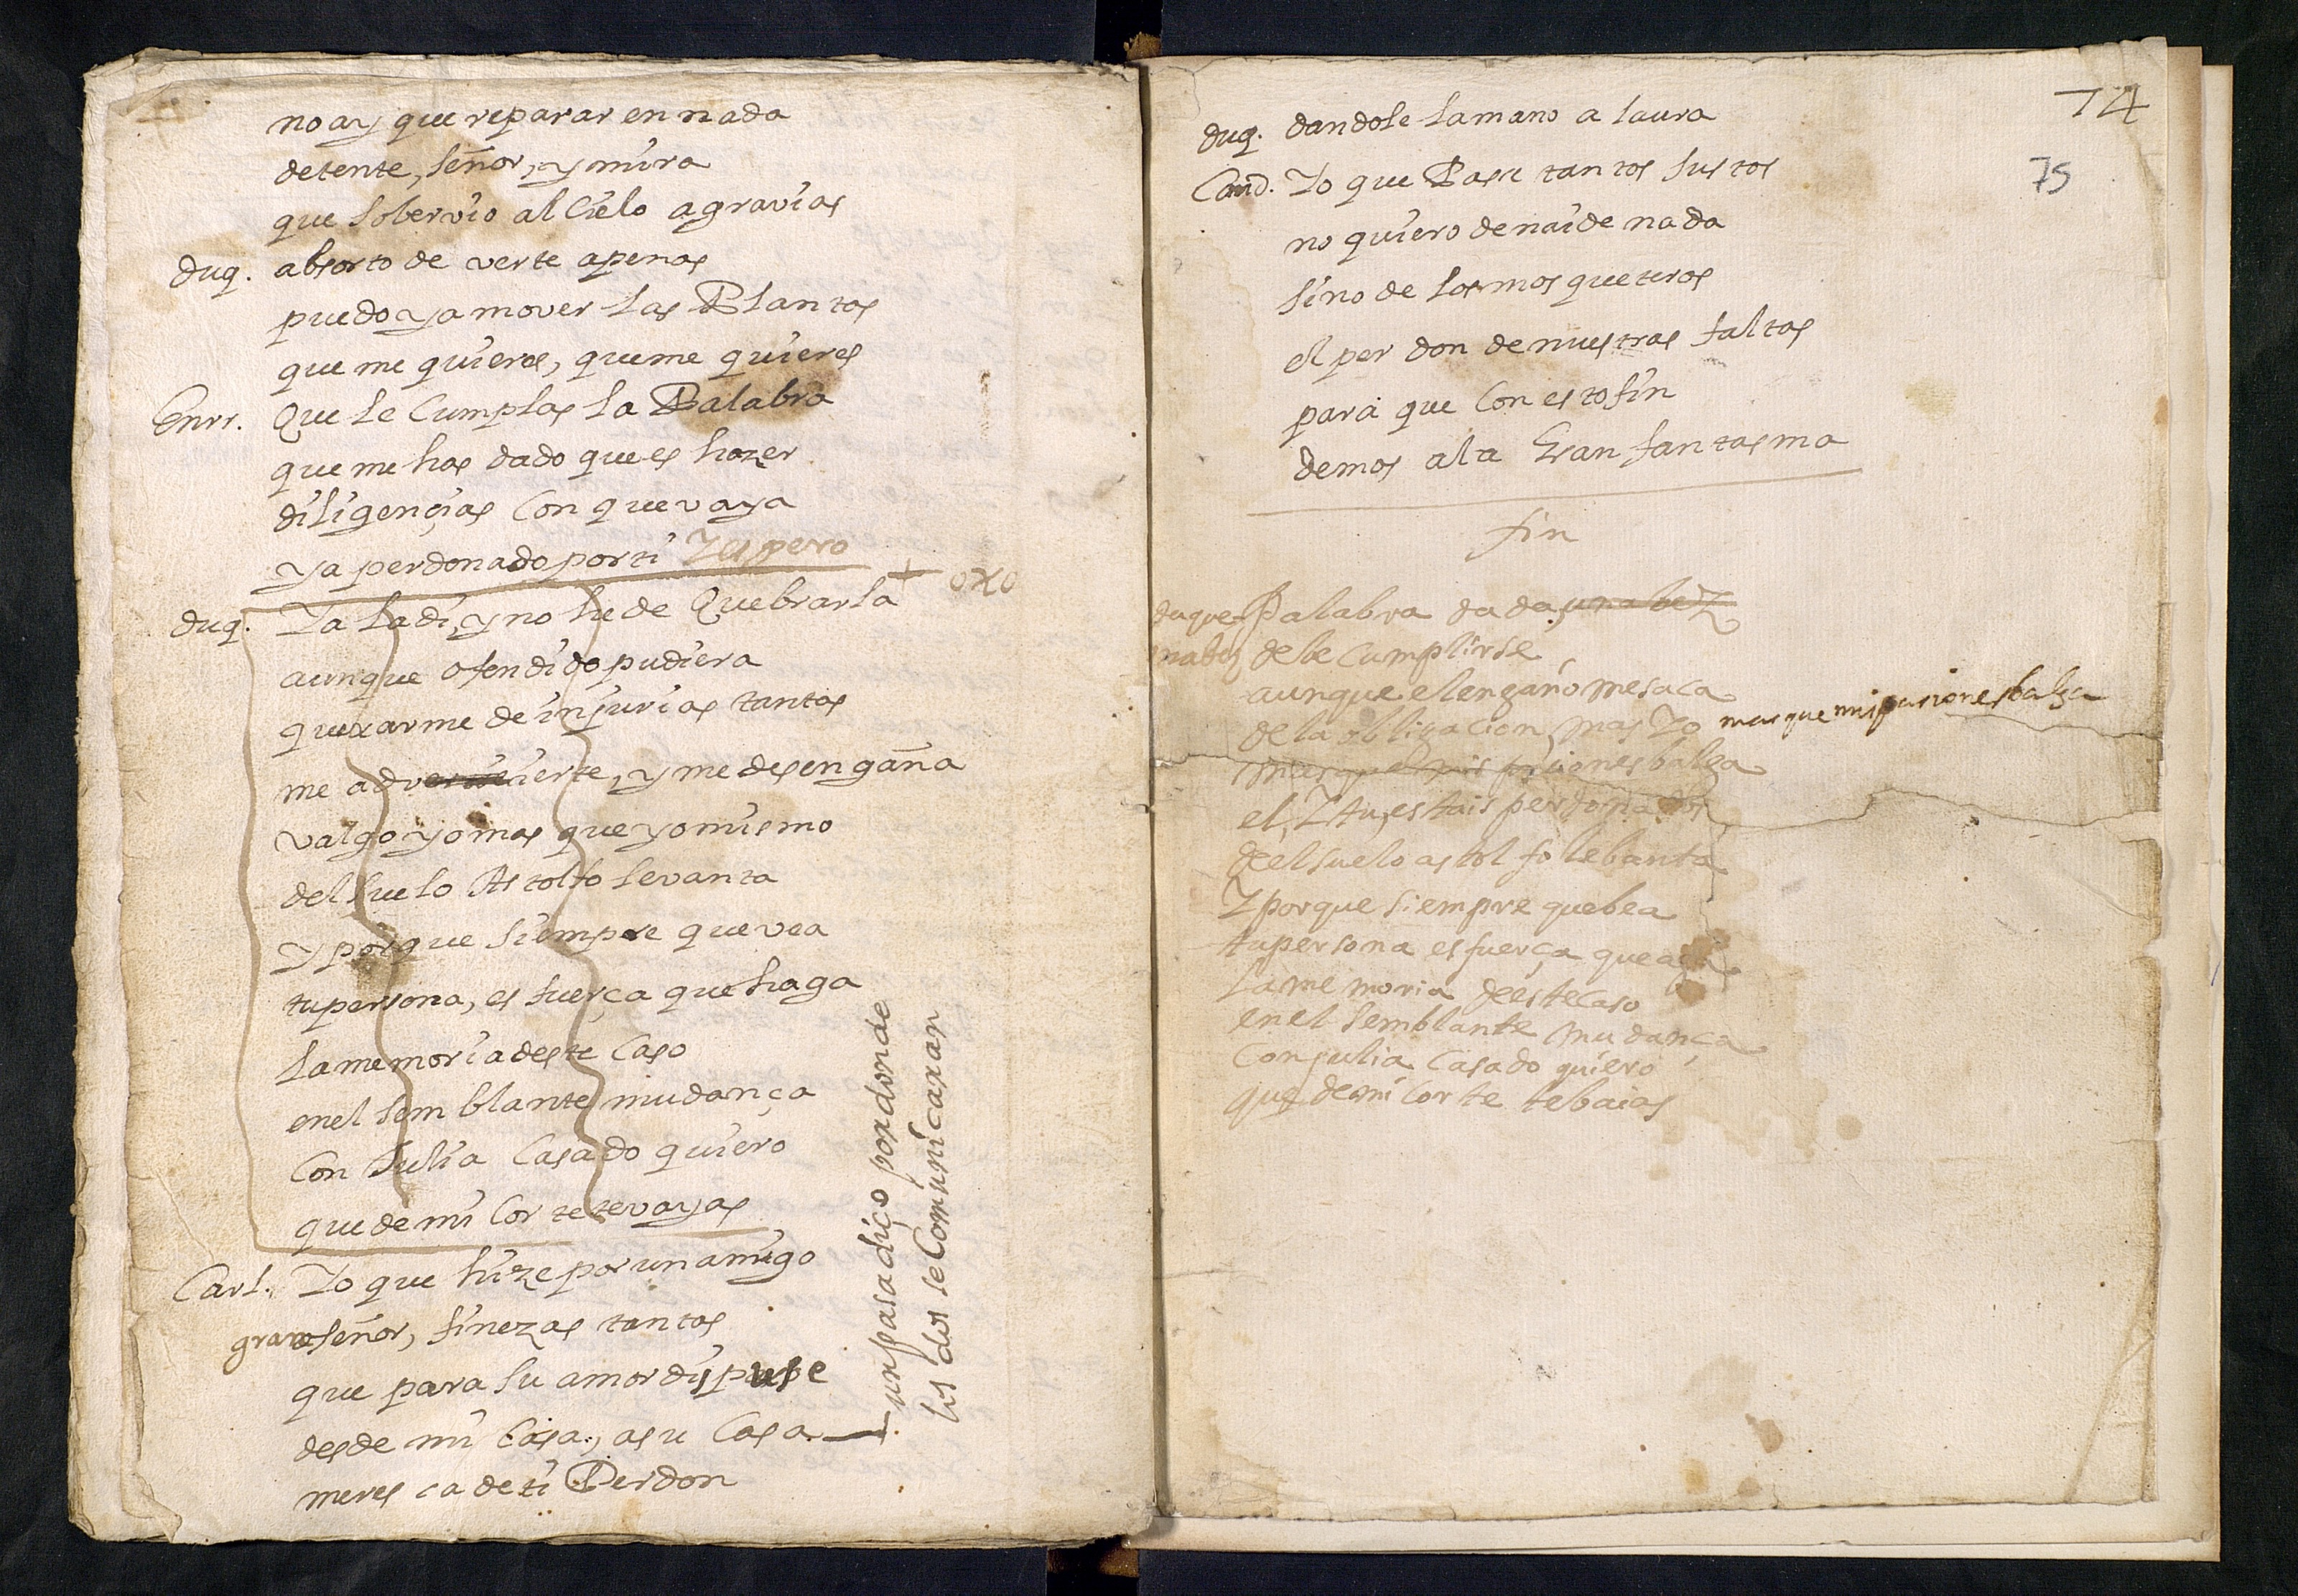 no ay que reparar en nada
detente, señor, y mira
que sobervio al Cielo agravias
duq. absorto de verte apenas
puedo ya mover las Plantas
que me quieres, que me quieres
Enrr. Que le Cumplas la Palabra
que me has dado que es hazer
diligençias Con que vaya
ya perdonado por ti Y espero
+ oxo
duq. Ya la di, y no he de Quebrarla
aunque ofendido pudiera
quexarme de injurias tantas
me advierte, y me desengaña
valgo yo mas que yo mismo
del suelo Astolfo levanta
y porque siempre que vea
tu persona, es fuerça que haga
la memoria deste Caso
en el semblante mudança
Con Julia Casado quiero
que de mi Corte te vayas
Carl. Yo que hize por un amigo
gran señor, finezas tantas
que para su amor dispuse
desde mi Casa, a su Casa
meresca de ti Perdon
un pasadiço por donde
los dos se Comunicaran
74
75
duq. dandole la mano a laura
Cand. Yo que Pase tantos sustos
no quiero de naide nada
sino de los mosqueteros
el perdon de nuestras faltas
para que Con esto fin
demos a la Gran fantasma
fin
duque Palabra dada, una beZ
una bez debe Cumplirse
aunque el engaño me saca
de la obligacion, mas Yo
mas que mis pasiones balga
mas que mis pasiones balga
el, Y tu, estais perdonados
del suelo astolfo lebanta
Y porque siempre que bea
tu persona es fuerça que aga
la memoria de este Caso
en el semblante mudança
Con julia Casado quiero
que de mi Corte te baias